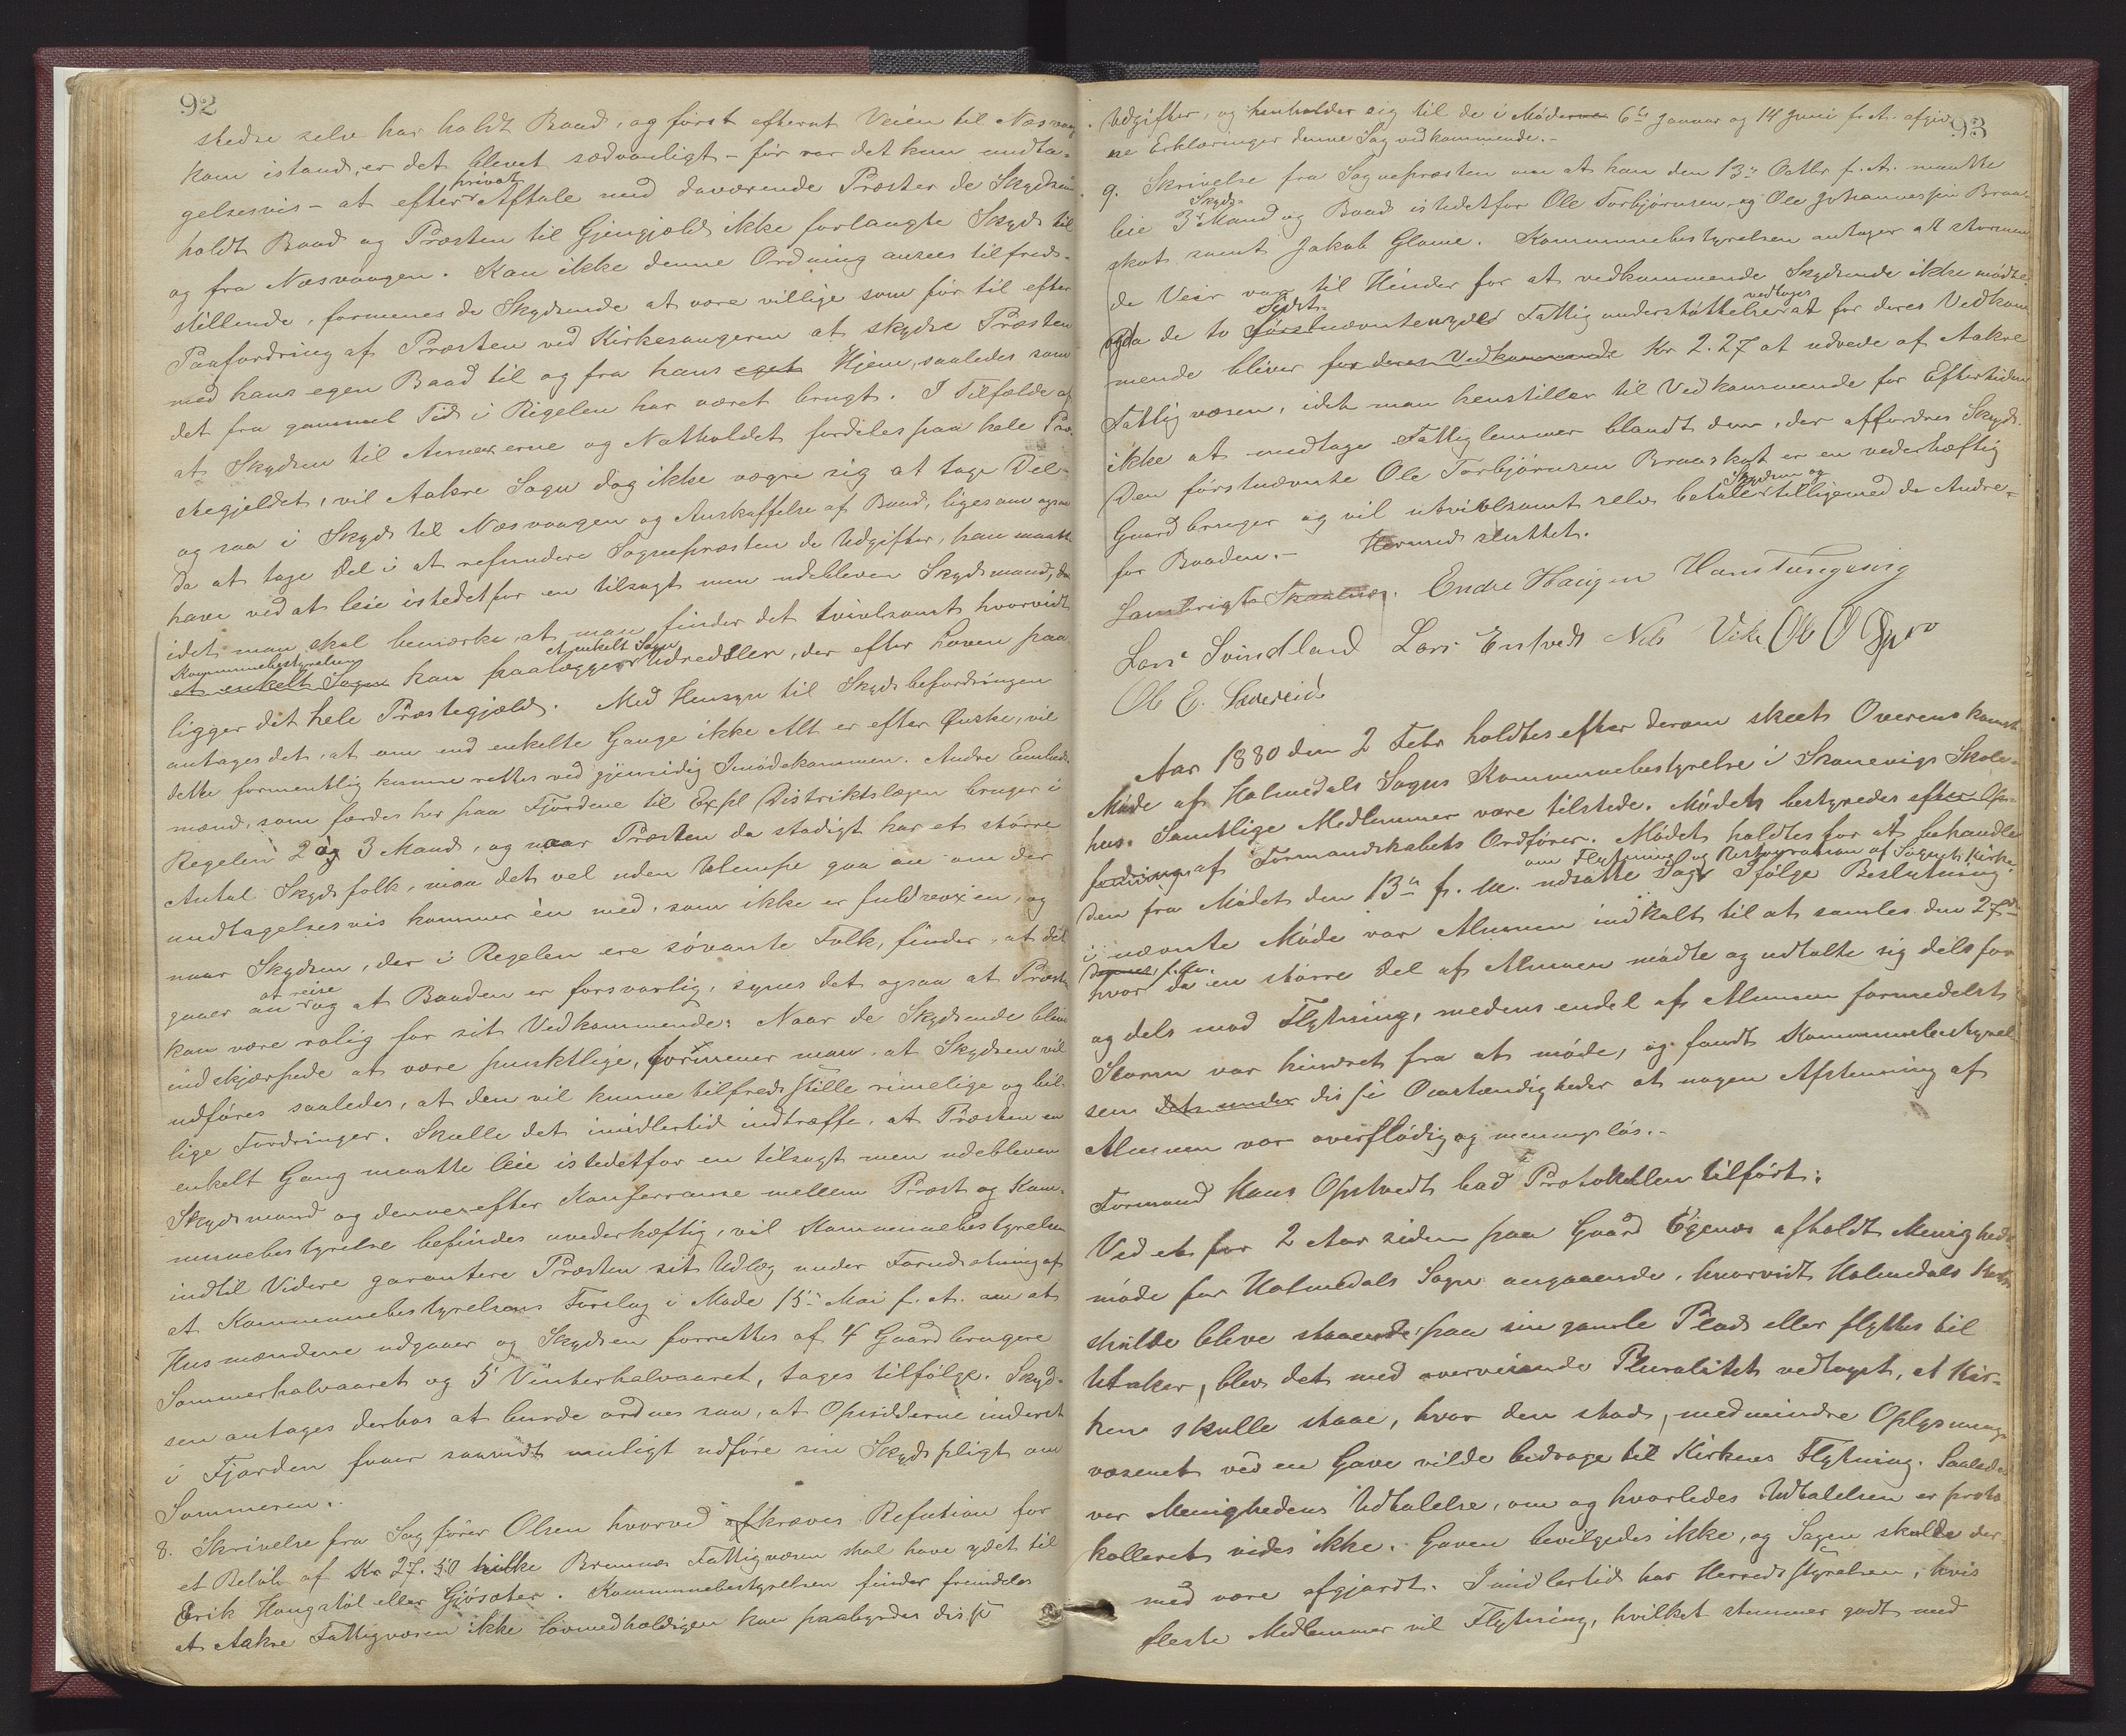 92
stedse selv har holdt Baad, og først efterat Veien til Næsvaag
kom istand, er det blevet sædvanligt - før var det kun undta-
gelsesvis - at efter privat Aftale med daværende Præster de Skydsen
holdt Baad og Præsten til Gjengjæld ikke forlangte Skyds til
og fra Næsvaagen. Kan ikke denne Ordning ansees tilfreds-
stillende, formenes de Skydsende at være villige som før til efter
Paafordring af Præsten ved Kirkesangeren at skydse Præsten
med hans egen Baad til og fra hans eget Hjem, saaledes som
det fra gammel Tid i Rigelen har været brugt. I Tilfælde af
at Skydsen til Annexerne og Natholdet fordeles paa hele Præ-
stegjeldet, vil Aakre Sogn dog ikke vægre sig at tage Del
og saa i Skyds til Næsvaagen og Anskaffelse af Baad, ligesom ogsaa
da at tage Del i at refundere Sognepræsten de Udgifter, han maatte
have ved at leie istedetfor en tilsagt men udebleven Skydsmand, da
idet man skal bemærke, at man finder det tvivlsomt hvorvidt
Kommunebestyrelsen et enkelt Sogn
et enkelt Sogn kan paalægges Udredsler, der efter Loven paa-
ligger det hele Præstegjæld. Med Hensyn til Skydsbefordringen
antages det, at om end enkelte Gange ikke Alt er efter Ønske, vil
dette formentlig kunne rettes ved gjensidig Imødekommen. Andre Embeds-
mænd, som færdes her paa Fjordene til Expl Distriktslægen bruger i
Regelen 2 og 3 Mand, og naar Præsten da stadigt har et større
Antal Skydsfolk, maa det vel uden Ulempe gaa an om der
undtagelsesvis kommer én med, som ikke er fuldvoxen, og
naar Skydsen, der i Regelen ere søvante Folk, finder, at det
gaaer an at reise og at Baaden er forsvarlig, synes det ogsaa at Præsten
kan være rolig for sit Vedkommende. Naar de Skydsende blive
indskjærpede at være punktlige, formener man, at Skydsen vil
udføres saaledes, at den vil kunne tilfredsstille rimelige og bil-
lige Fordringer. Skulle det imidlertid indtræffe, at Præsten en
enkelt Gang maatte leie istedetfor en tilsagt men udebleven
Skydsmand og denne efter Konferranse mellem Præst og Kom-
munebestyrelse befindes uvederhæftig, vil Kommunebestyrelsen
indtil Videre garantere Præsten sit Udlæg under Forudsætning af
at Kommunebestyrelsens Forslag i Møde 15de Mai f. A. om at
Husmændene udgaaer og Skydsen forrettes af 4 Gaardbrugere
Sommerhalvaaret og 5 Vinterhalvaaret, tages tilfølge. Skyd-
sen antages derhos at burde ordnes saa, at Opsidderne inderst
i Fjorden faaer saavidt muligt udføre sin Skydspligt om
Sommeren..
8. Skrivelse fra Sagfører Olsen hvorved afkræves Refution for
et Beløb af Kr 27.50 hvilke Bremnes Fattigvæsen skal have ydet til
Erik Haugstøl eller Gjøsæter. Kommunebestyrelsen finder fremdeles
at Aakre Fattigvæsen ikke lovmedholdigen kan paabyrdes disse
93
Udgifter, og henholder sig til de i Møderne 6te Januar og 14 Juni f. A. afgiv-
ne Erklæringer denne Sag vedkommende.-
9. Skrivelse fra Sognepræsten om at han den 13de Octbr f. A. maatte
leie 3 Skyds-Mand og Baad istedetfor Ole Torbjørnsen og Ole Johannessen Braa-
skat samt Jakob Glame. Kommunebestyrelsen antager at stormen-
de Veir var til Hinder for at vedkommende Skydsende ikke mødte
og da de to Sidst førstnævnte nyder Fattigunderstøttelse vedtages at for deres Vedkom-
mende bliver for deres Vedkommende Kr 2.27 at udrede af Aakre
Fattigvæsen, idet man henstiller til Vedkommende for Eftertiden
ikke at medtage Fattiglemmer blandt dem, der affordres Skyds.
Den førstnævnte Ole Torbjørnsen Braaskat er en vederhæftig
Gaardbruger og vil utvivlsomt selv betale Skydsen og tilligemed de Andre
for Baaden.- Hermed sluttet.
Endre Haugen Hans Tungesvig
Lars Svindland Lars Enstveds Nils Vike Ob O
Ob E. Sævereide
Aar 1880 den 2 Febr holdtes efter derom skeet Overenskomst
Møde af Holmedals Sogns Kommunebestyrelse i Skonevigs Skole-
hus. Samtlige Medlemmer vare tilstede. Mødet bestyredes efter Op-
fordring af Formandskabets Ordfører. Mødet holdtes for at behandle
om Flytning og Restauration af Sognets Kirke.
den fra Mødet den 13de f. M. udsatte Sag Ifølge Beslutning
i nævnte Møde var Almuen indkalt til at samles den 27de
hvor da en større Del af Almuen mødte og udtalte sig dels for
og dels mod Flytning, medens endel af Almuen formedelst
Storm var hindret fra at møde, og fandt Kommunebestyrel-
sen det under disse Omstændigheder at nogen Afstemning af
Almuen var overflødig og meningsløs.-
Formand Hans Opstvedt bad Protokollen tilført:
Ved et for 2 Aar siden paa Gaard Egenæs afholdt Menigheds-
møde for Holmedals Sogn angaaende, hvorvidt Holmedals Kirke
skulde blive staaende paa sin gamle Plads eller flyttes til
Utaker, blev det med overveiende Pluralitet vedtaget, at Kir-
ken skulle staae, hvor den stod, medmindre Oplysnings-
væsenet ved en Gave vilde bidrage til Kirkens Flytning. Saaledes
var Menighedens Udtalelse, om og hvorledes Udtalelsen er proto-
kolleret vides ikke. Gaven bevilgedes ikke, og Sagen skulde der-
med være afgjordt. Imidlertid har Herredsstyrelsen, hvis
fleste Medlemmer vil Flytning, hvilket stemmer godt med